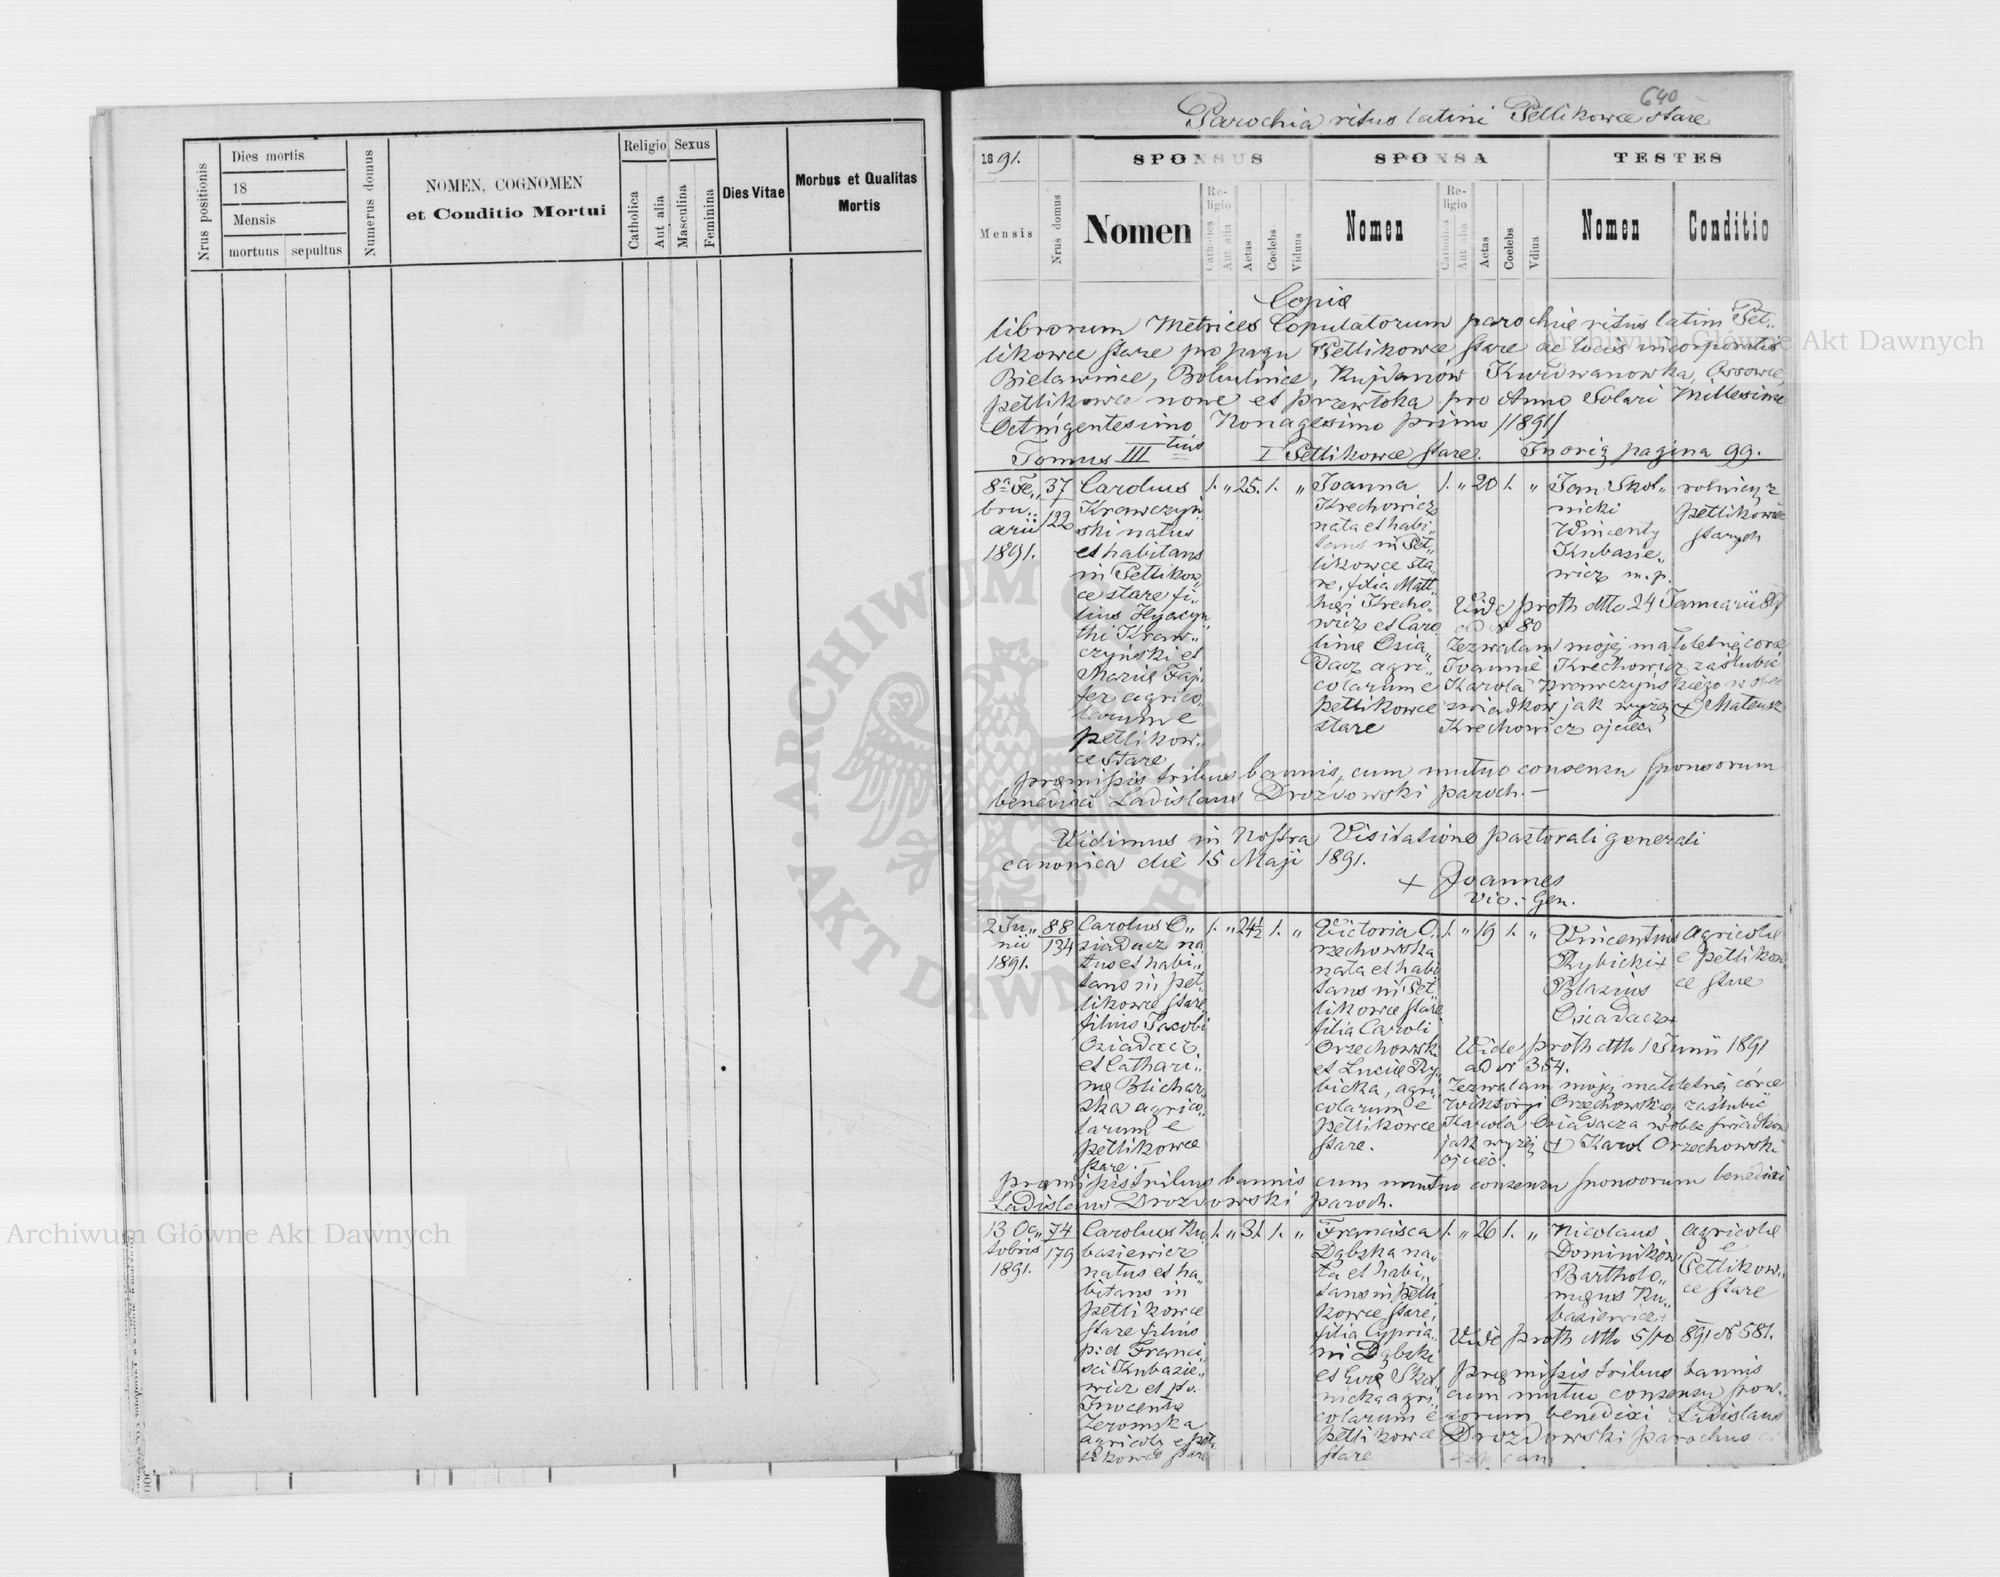 Nrus positionis
Dies mortis
18
Mensis
mortuus
sepultus
Numerus domus
NOMEN, COGNOMEN
et Conditio Mortui
Religio
Catholica
Aut alia
Sexus
Masculina
Feminina
Dies Vitae
Morbus et Qualitas
Mortis
640
Parochia ritus latini Petlikowce stare
1891.
SPONSUS
SPONSA
TESTES
Mensis
Nrus domus
Nomen
Re-
ligio
Catholica
Aut alia
Aetas
Coelebs
Viduus
Nomen
Re-
ligio
Catholica
Aut alia
Aetas
Coelebs
Vdiua
Nomen
Conditio
Copia
librorum Metrices Copulatorum parochie ritus latini Pet„
likowce stare pro pagu Petlikowce stare ac locis incorporatis
Bielawince, Bobulince, Kujdanów Kurdwanowka, Ossowce,
petlikowce nove et przewłoka pro Anno Solari Millesimo
Octingentesimo Nonagesimo primo /1891/
Tomus III tius I Petlikowce stare. In orig pagina 99.
8a Fe„
bru„
arii
1891.
37
122
Carolus
Krawczyń
ski natus
et habitans
in Petlikow„
ce stare fi„
lius Hyacyn„
thi Kraw„
czyński et
Marie Faj„
fer agrico„
larum e
petlikow„
ce stare
1. „ 25. 1. „
Joanna
Krechowicz
nata et habi„
tans in Pet„
likowce sta„
re, filia Matt„
hei Krecho„
wicz et Caro
line Osia„
dacz agri„
colarum e
petlikowce
stare
1. „ 20 1. „
Jan Skol„
nicki
Wincenty
Kubasie„
wicz m.p.
rolnicy z
petlikowce
starych
Vide proth dtto 24 Januarii 891
ad N 80
Zezwalam mojej małoletniej córce
Joannie Krechowicz zaślubić
Karola Krawczyńskiego w obec
świadków jak wyżej (+) Mateusz
Krechowicz ojciec.
premissis tribus bannis, cum mutuo consensu sponsorum
benedixi Ladislaus Drozdowski paroch. —
Vidimus in Nostra Visitatione pastorali generali
canonica die 15 Maji 1891.
+ Joannes
Vic. Gen.
2 Ju„
nii
1891.
88
134
Carolus O„
siadacz na
tus et habi„
tans in pet„
likowce stare
filius Jacobi
Osiadacz
et Cathari„
ne Blichar„
ska agrico„
larum e
petlikowce
stare.
1. „ 24½ 1. „
Victoria O„
rzechowska
nata et habi
tans in Pet„
likowce stare
filia Caroli
Orzechowski
et Lucie Ry„
bicka, agri„
colarum e
petlikowce
stare.
1. „ 19 1. „
Vincentius
Rybicki +
Blazius
Osiadacz +
Agricolae
e petlikow„
ce stare
Vide proth dtto 1 Junii 1891
ad N 354.
Zezwalam mojej małoletniej córce
Wiktoryi Orzechowskiej zaślubić
Karola Osiadacza wobec świadków
jak wyżej (+) Karol Orzechowski
ojciec.
premissis tribus bannis cum mutuo consensu sponsorum benedixi
Ladislaus Drozdowski paroch.
13 Oc„
tobris
1891.
74
179
Carolus Ku„
basiewicz
natus et ha„
bitans in
petlikowce
stare filius
p: d Franci„
sci Kubasie„
wicz et p.
Inocente
Zeromska
agricola e pet„
likowce stare
1. „ 31. 1. „
Francisca
Dąbska na„
ta et habi„
tans in petli
kowce stare,
filia Cypria„
ni Dąbski
et Eve Skol
nicka agri„
colarum e
petlikowce
stare
1. „ 26 1. „
Nicolaus
Dominików
Bartholo„
meus Ku„
basiewicz +
Agricolae
e
Petlikow„
ce stare
Vide proth dtto 5/10 891 N 581.
premissis tribus bannis
cum mutuo consensu spon„
sorum benedixi Ladislaus
Drozdowski parochus
can.
ARCHIWUM GŁÓWNE AKT DAWNYCH
Archiwum Główne Akt Dawnych
Archiwum Główne Akt Dawnych